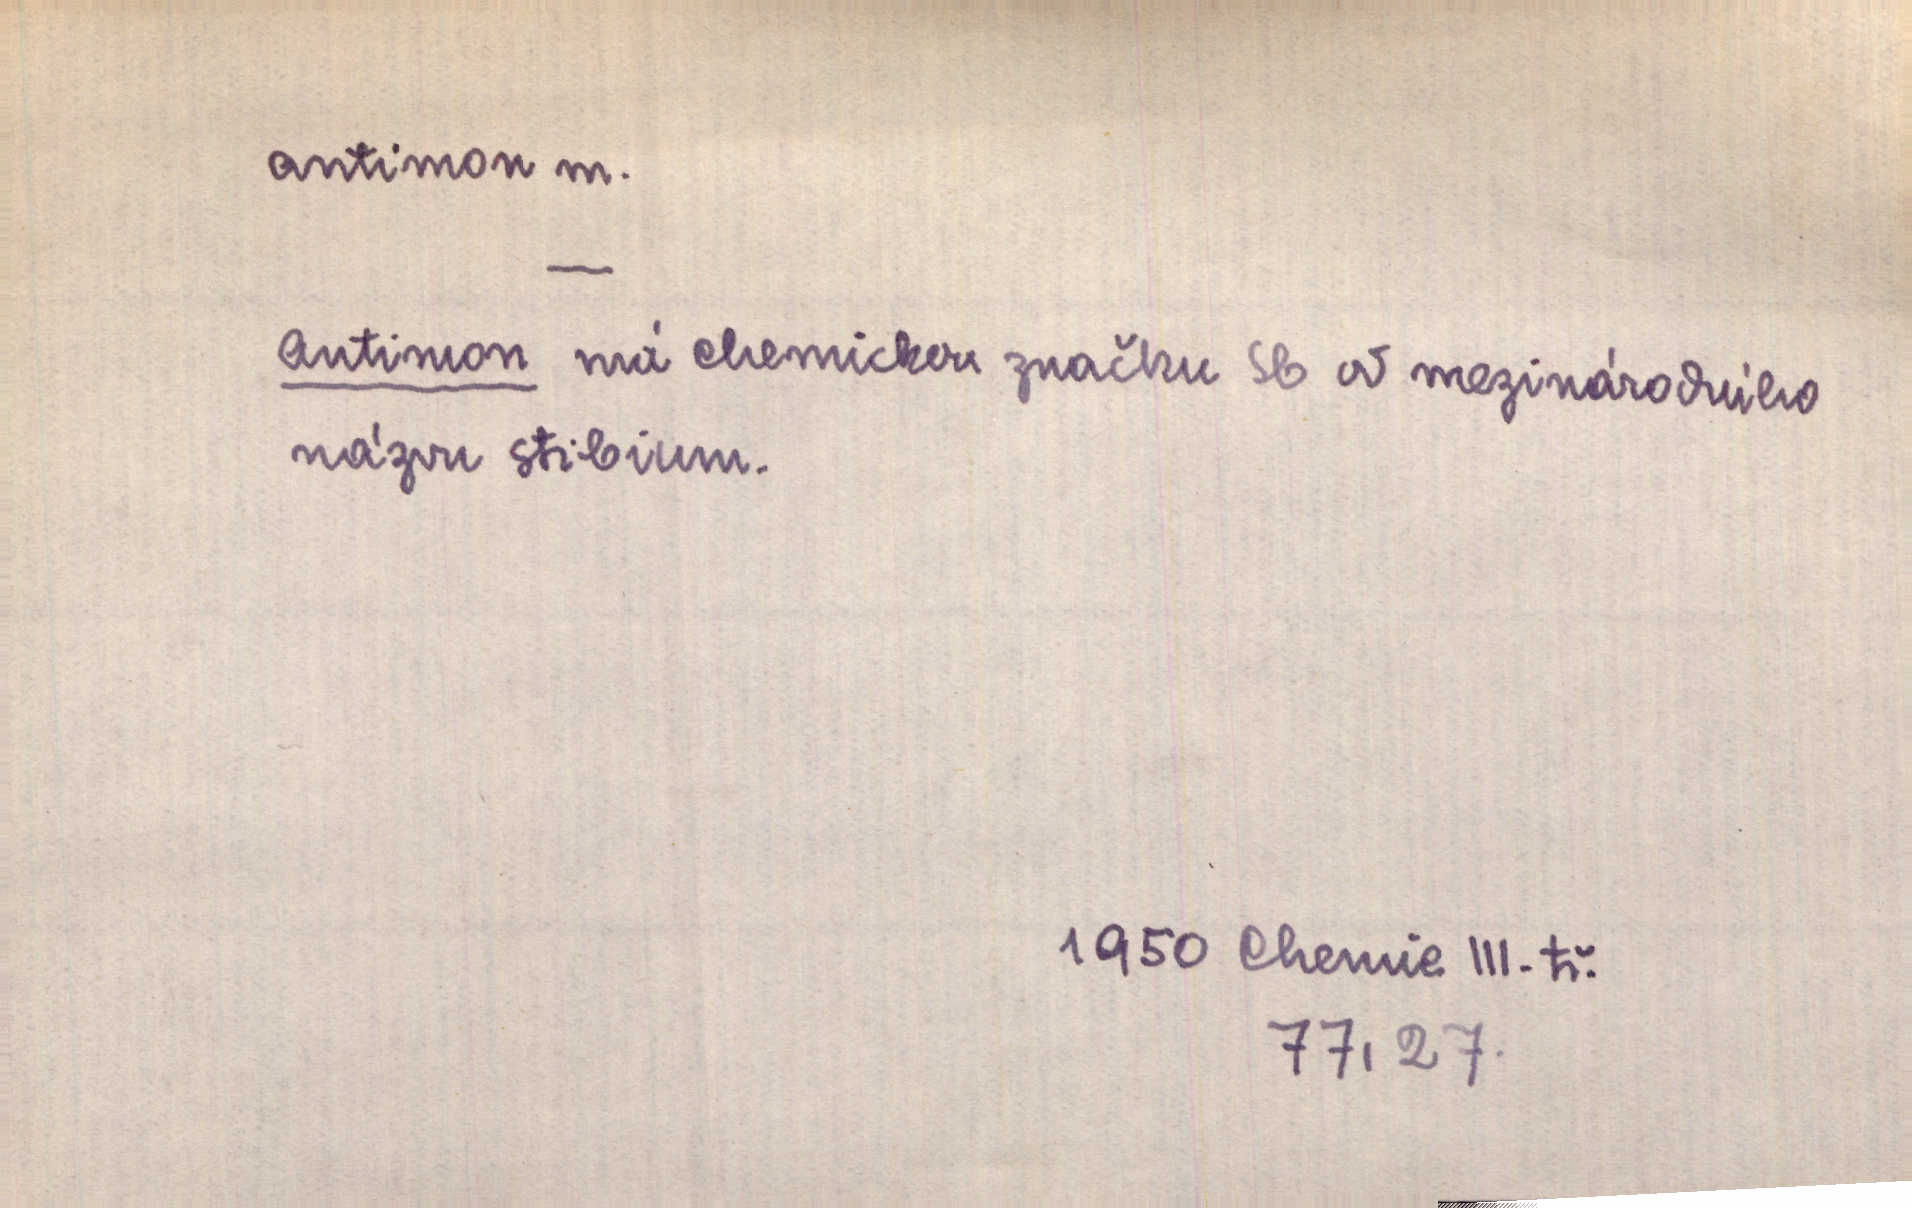 antimon m.
—
Antimon má chemickou značku Sb od mezinárodního
názvu stibium.
1950 Chemie III. tř.
77, 27.